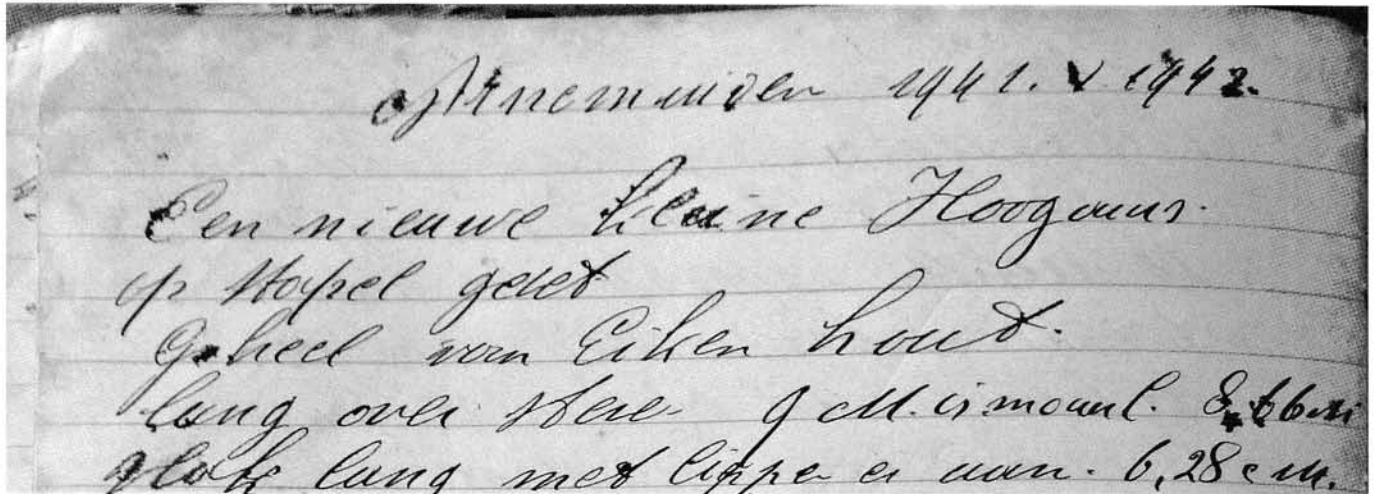 Arnemuiden 1941. 1942.
Een nieuwe kleine Hoogaars.
op stapel gezet
Geheel van Eiken hout.
lang over steve 9 M. is maal.
lang met lippe er aan. 6,28 c M.